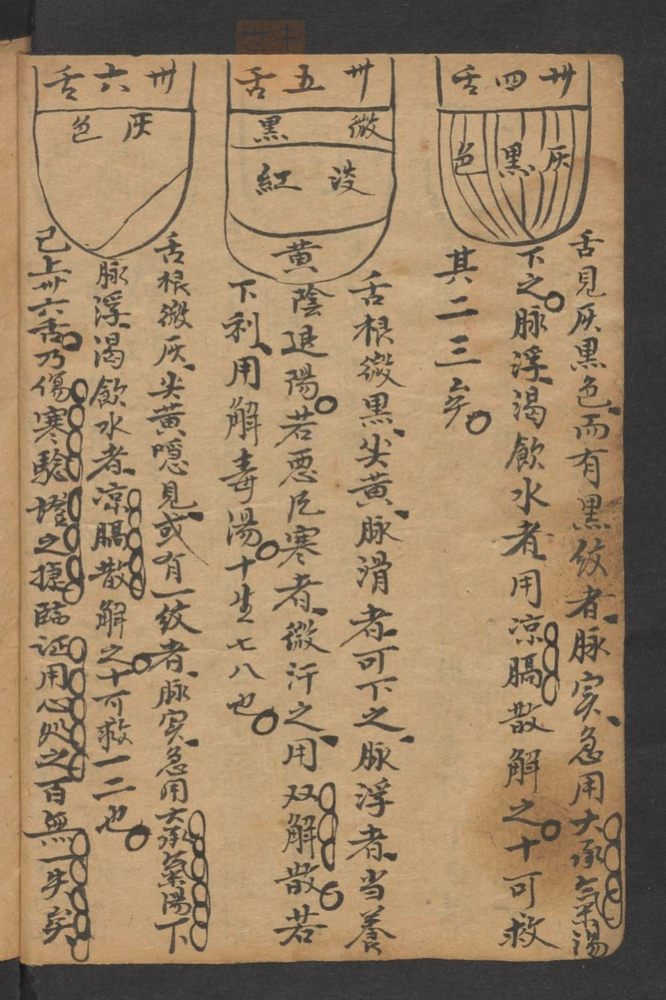 卅四舌
灰黑色
舌見灰黑色而有黑紋者脉实急用大承氣湯
下之脉浮渴飲水者用凉膈散解之十可救
其二三矣
卅五舌
微黑
淡紅
黄
舌根微黑尖黄脉滑者可下之脉浮者当養
陰退陽若恶风寒者微汗之用双解散若
下利用解毒湯十生七八也
卅六舌
灰色
舌根微灰尖黄隱見或有一紋者脉实急用大承氣湯下
脉浮渴飲水者凉膈散解之十可救一二也
已上卅六舌乃傷寒驗證之捷臨证用心处之百無一失矣